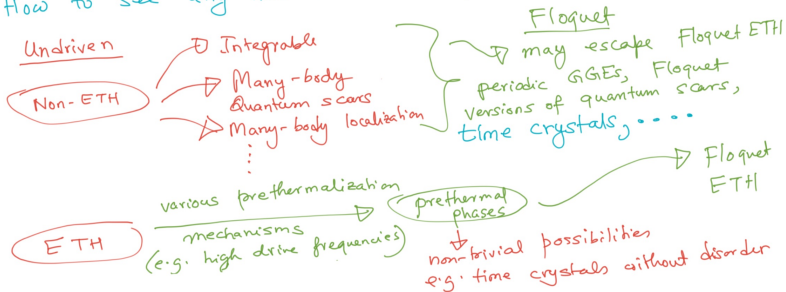 How to see
Floquet
Undriven
Non-ETH
Integrable
Many-body
Quantum scars
Many-body localization
may escape Floquet ETH
periodic GGEs, Floquet
versions of quantum scars,
time crystals, ....
ETH
various prethermalization
mechanisms
(e.g. high drive frequencies)
prethermal
phases
Floquet
ETH
non-trivial possibilities
e.g. time crystals without disorder